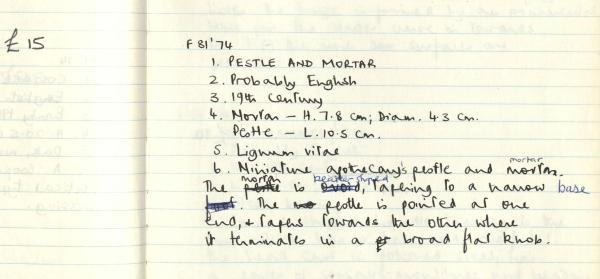 £15
F 81'74
1. PESTLE AND MORTAR
2. Probably English
3. 19th Century
4. Mortar – H. 7.8 cm; Diam. 4.3 cm.
Pestle – L. 10.5 cm.
5. Lignum vitae
6. Miniature apothecary's pestle and mortar.
The mortar is beaker-shaped, tapering to a narrow base
. The pestle is pointed at one
end, & tapers towards the other where
it terminates in a broad flat knob.